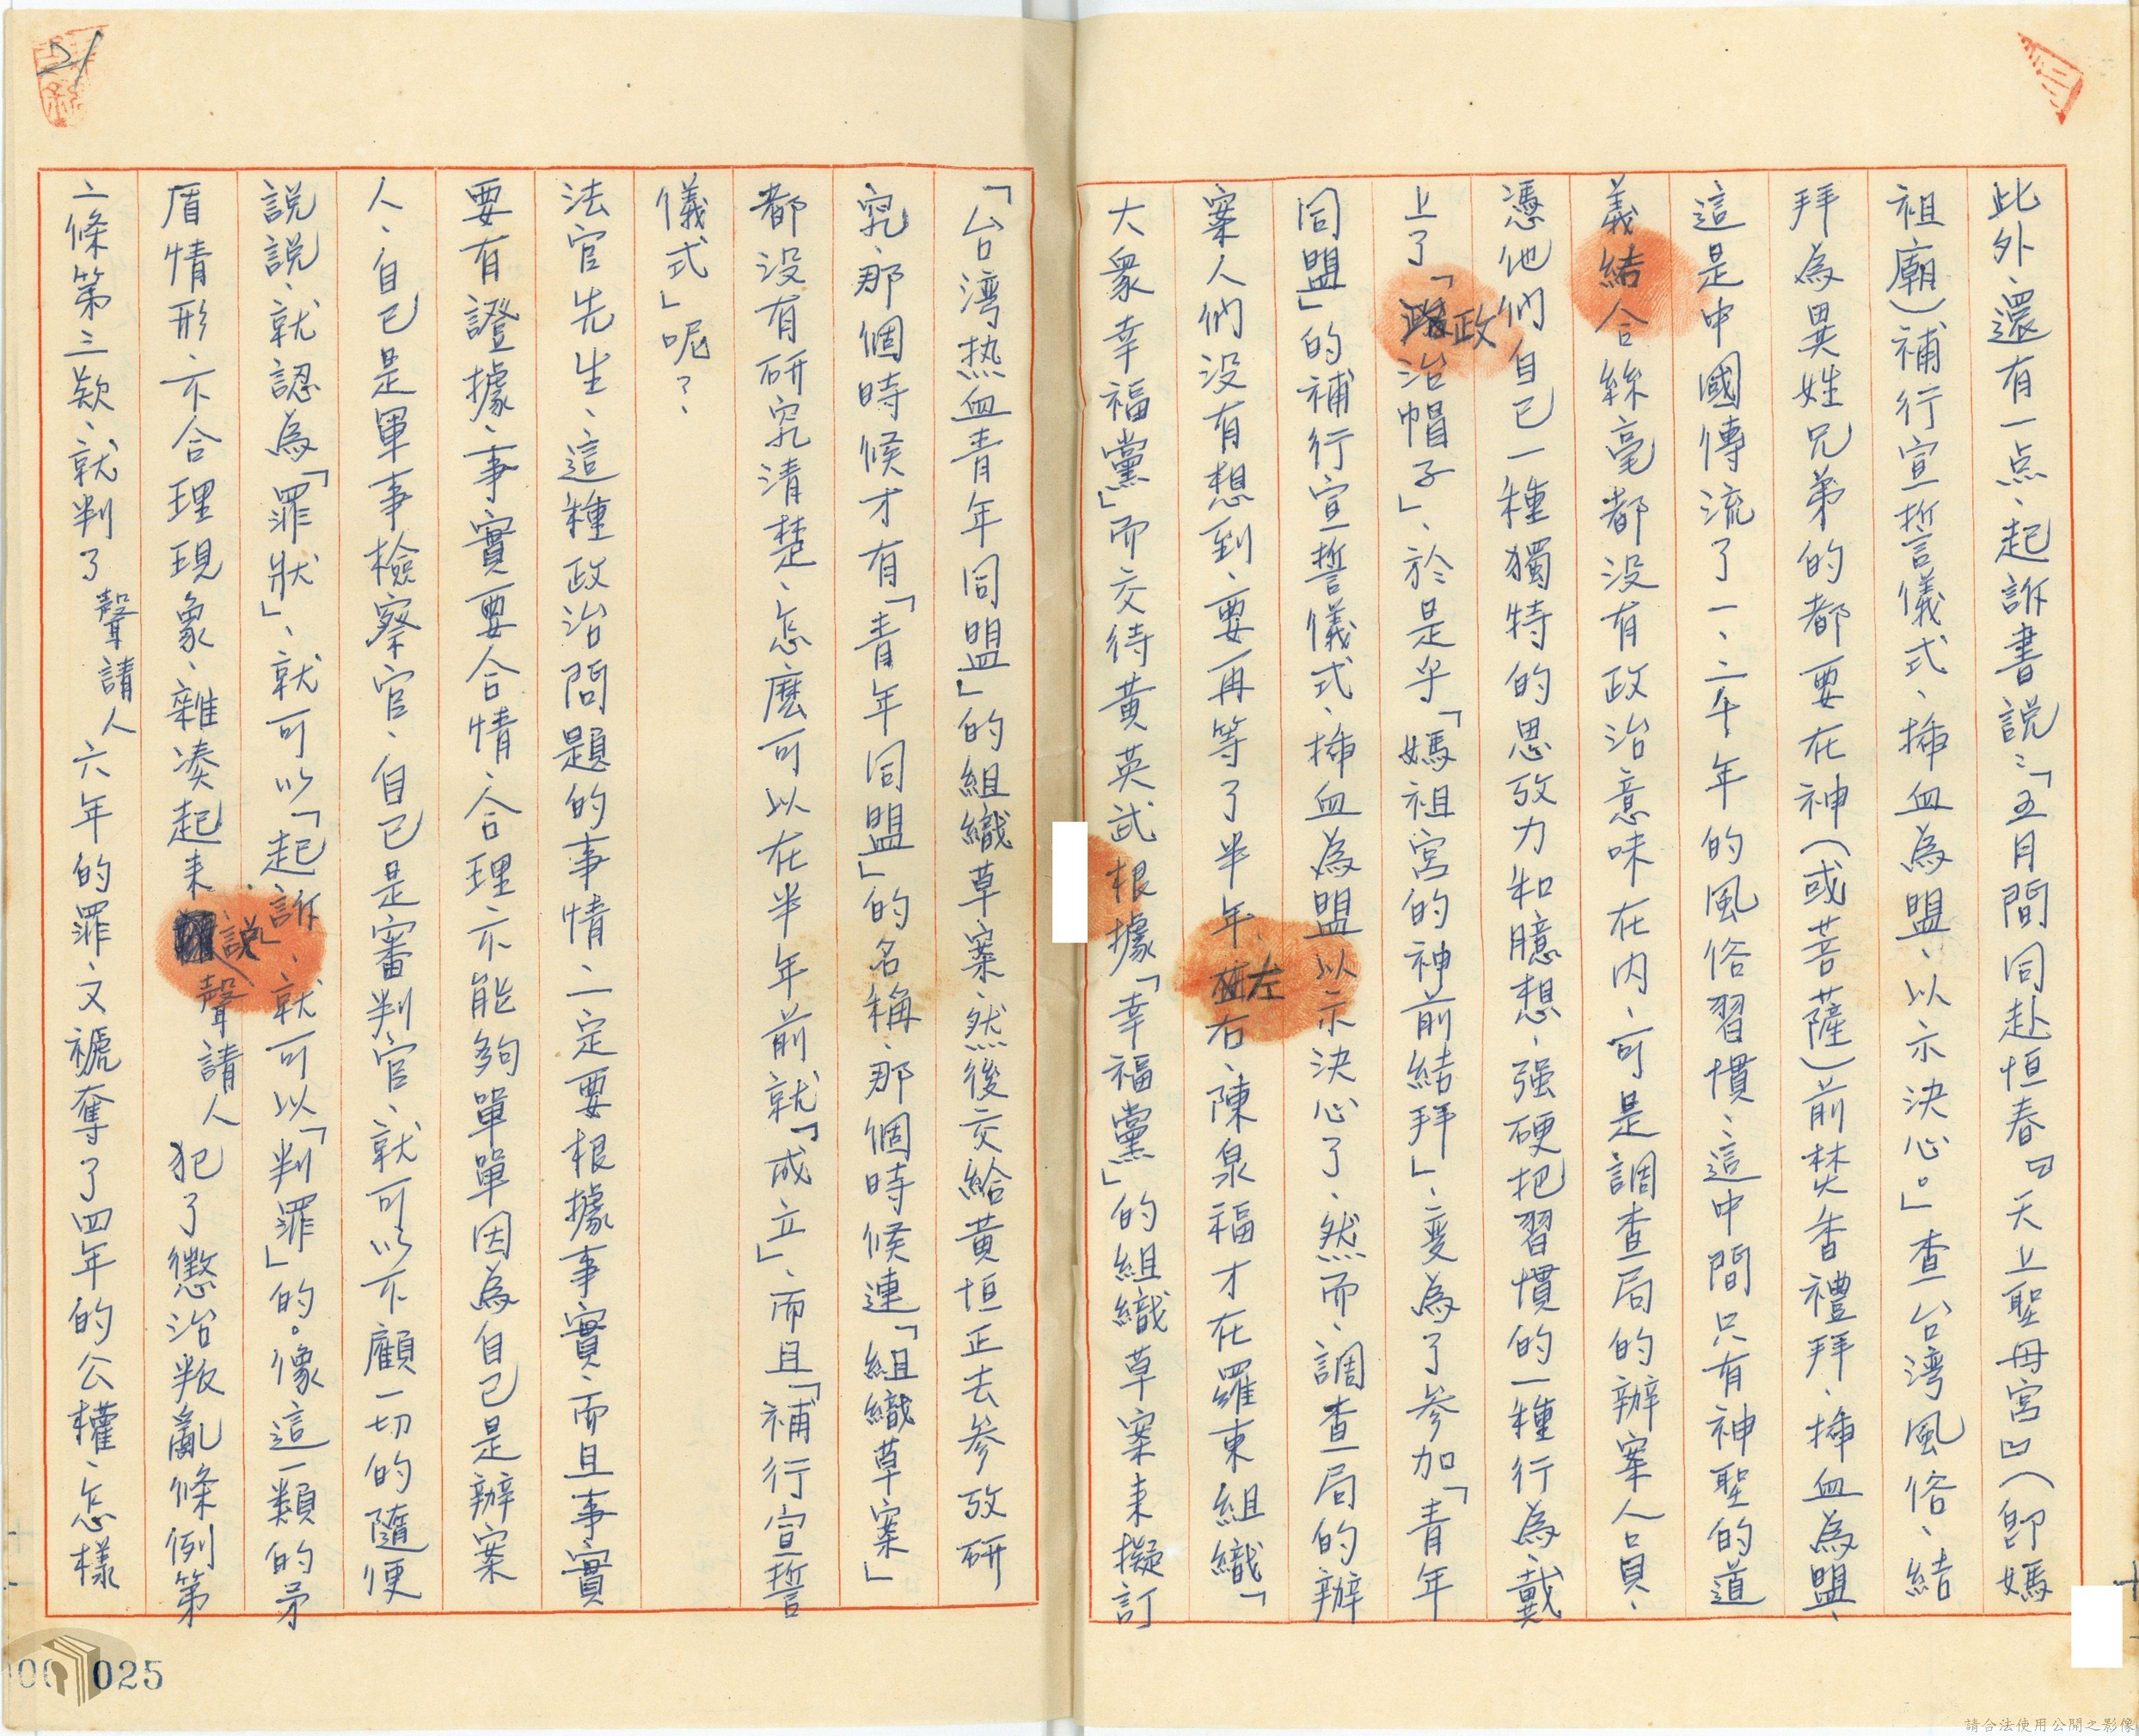 此外、還有一点、起訴書説:「五月間同赴恒春『天上聖母宮』(卽媽
祖廟)補行宣誓儀式、揷血為盟、以示決心。」查台湾風俗、結
拜為異姓兄弟的都要在神(或菩薩)前焚香禮拜、揷血為盟、
這是中國傳流了一、二千年的風俗習慣、這中間只有神聖的道
義結合絲毫都没有政治意味在内、可是調查局的辦案人員、
憑他們自己一種獨特的思攷力和臆想、强硬把習慣的一種行為、戴
上了「政治帽子」、於是乎「媽祖宮的神前結拜」、変為了参加「青年
同盟」的補行宣誓儀式、揷血為盟以示決心了、然而、調查局的辦
案人們没有想到、要再等了半年、左右、陳泉福才在羅東組織「
大衆幸福黨」而交待黃英武根據「幸福黨」的組織草案来擬訂
「台湾热血青年同盟」的組織草案然後交給黃恒正去参攷研
究、那個時候才有「青年同盟」的名稱、那個時候連「組織草案」
都没有研究清楚、怎麽可以在半年前就「成立」、而且「補行宣誓
儀式」呢?、
法官先生、這種政治問題的事情、一定要根據事實、而且事實
要有證據、事實要合情、合理、不能夠單單因為自己是辦案
人、自己是軍事檢察官、自己是審判官、就可以不顧一切的隨便
説説、就認為「罪狀」、就可以「起訴」、就可以「判罪」的。像這一類的矛
盾情形、不合理現象、雜凑起来説聲請人犯了懲治叛亂條例第
二條第三欵、就判了聲請人六年的罪、又褫奪了四年的公權、怎樣
21
025
請合法使用公開之影像